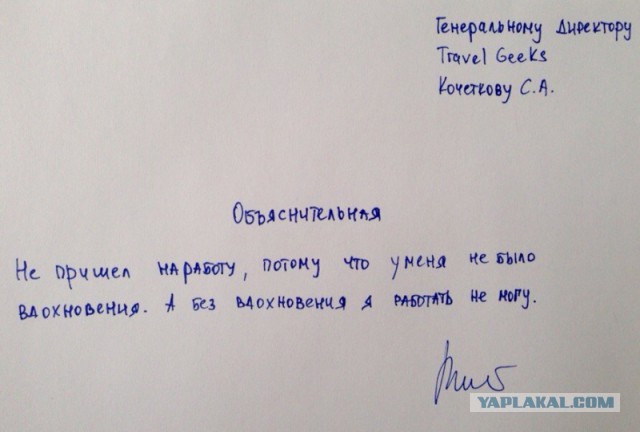 Генеральному директору
Travel Geeks
Кочеткову С.А.
Объяснительная
Не пришел на работу, потому что у меня не было
вдохновения. А без вдохновения я работать не могу.
YAPLAKAL.COM